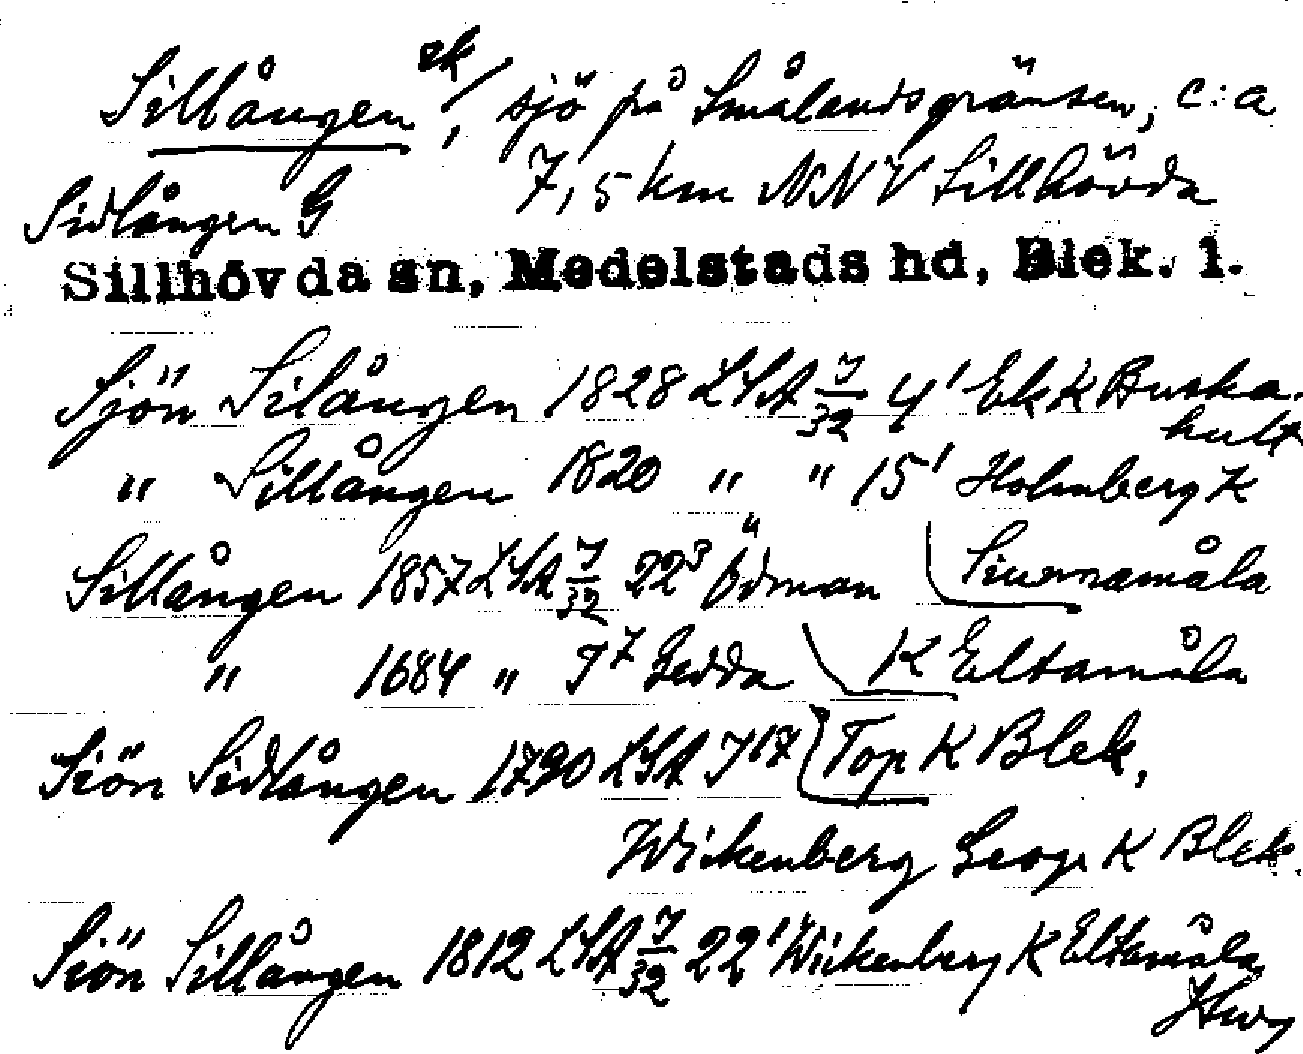 Sillången ek/, sjö på Smålandsgränsen, c:a
7,5 km NNV Sillhövda
Sidlången G
Sillhövda sn, Medelstads hd, Blek. l.
Sjön Silången 1828 LSA 7/32 4¹ Ek K Buskahult
" Sillången 1820 " " 15¹ Holmberg K
Sunnamåla
Sillången 1857 LSA 7/32 22³ Ödman
K Eltamåla
" 1684 " J⁷ Gedda
Top K Blek.
Siön Sidlången 1790 LSA J¹⁷
Wickenberg Geogr K Blek.
Siön Sillången 1812 LSA 7/32 22¹ Wickenberg K Eltamåla